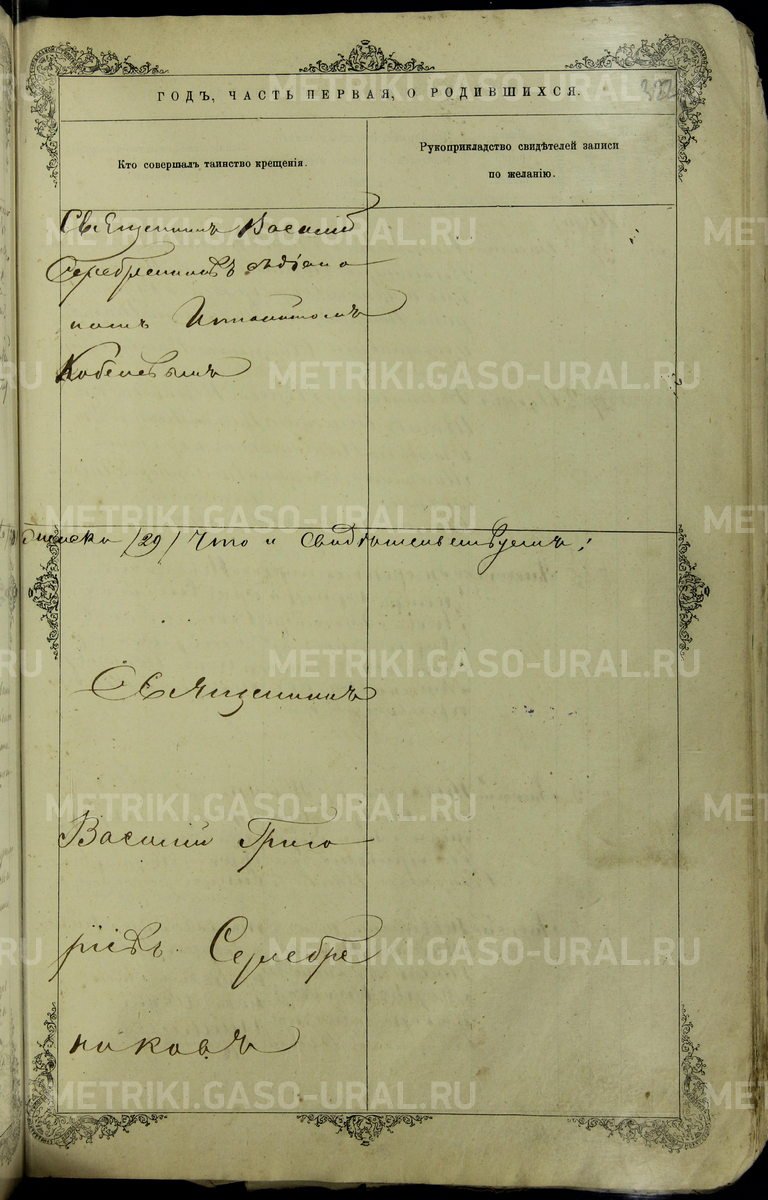 ГОДЪ, ЧАСТЬ ПЕРВАЯ, О РОДИВШИХСЯ.
322
Кто совершалъ таинство крещенія.
Рукоприкладство свидѣтелей записи
по желанію.
Священникъ Василій
Серебрениковъ съ діако
номъ
Кобелевымъ
/29/ что и свидѣтельствуемъ:
Священникъ
Василій Григо
ріевъ Серебре
никовъ
METRIKI.GASO-URAL.RU